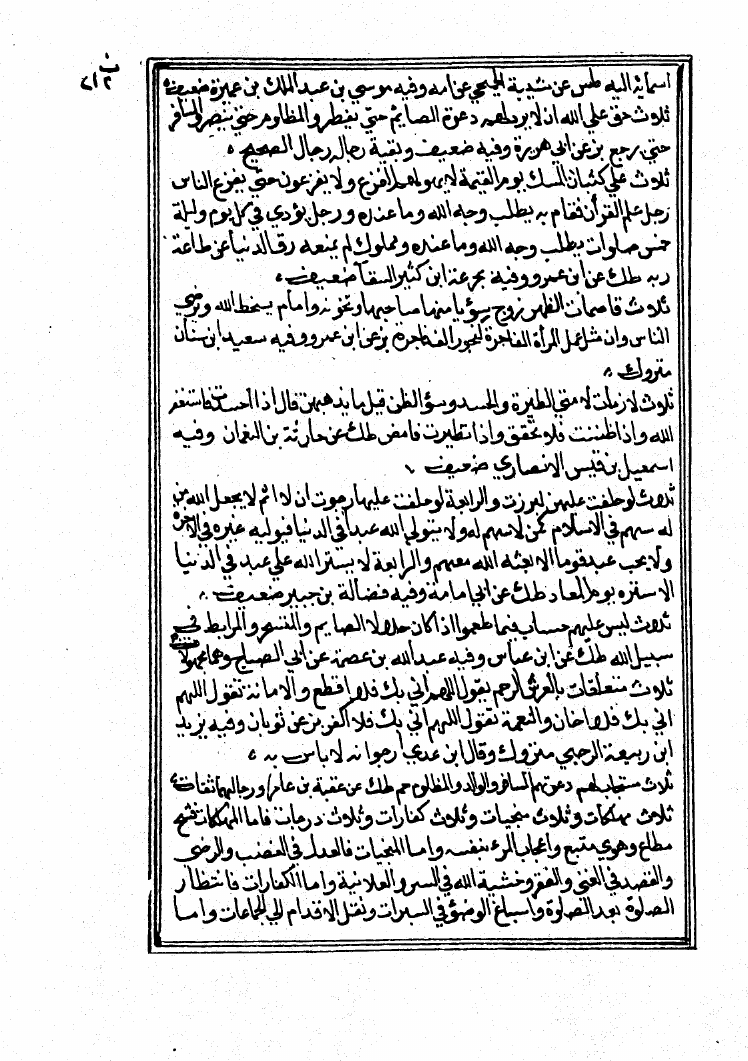 ب
٢١٢
اسمائه اليه طس عن شيبة الحجبي عن امه وفيه موسي بن عبد الملك بن عميرة ضعيف
ثلاث حق علي الله ان لا يرد لهم دعوة الصايم حتي يفطر والمظلوم حتي ينتصر والمسافر
حتي يرجع بز عن ابي هريرة وفيه ضعيف وبقية رجاله رجال الصحيح
ثلاث علي كثبان المسك يوم القيمة لا يهولهم الفزع ولا يفزعون حتي يفزع الناس
رجل علم القرأن فقام به يطلب وجه الله وما عنده ورجل يؤدي في كل يوم وليلة
خمس صلوات يطلب وجه الله وما عنده ومملوك لم يمنعه رق الدنيا عن طاعة
ربه طك عن ابن عمر وفيه بحر عن ابن كثير السقا ضعيف
ثلاث قاصمات الظهر زوج سؤ يامنها صاحبها وتخونه وامام يسخط الله ويرضي
الناس وان مثل عمل المرأة الفاجرة لفجور الف فاجرة بز عن ابن عمر وفيه سعيد ابن سنان
متروك
ثلاث لازمات لامتي الطيرة والحسد وسؤ الظن قيل ما يذهبهن قال اذا حسدت فاستغفر
الله واذا ظننت فلا تحقق واذا تطيرت فامض طك عن حارثة بن النعمان وفيه
اسمعيل بن قيس الانصاري ضعيف
ثلاث لو حلفت عليهن لبررت والرابعة لو حلفت عليها رجوت ان لا اثم لا يجعل الله من
له سهم في الاسلام كمن لا سهم له ولا يتولي الله عبدا في الدنيا فيوليه غيره في الاخرة
ولا يحب عبد قوما الا بعثه الله معهم والرابعة لا يستر الله علي عبد في الدنيا
الا ستره يوم المعاد طك عن ابي امامة وفيه فضالة بن جبير ضعيف
ثلاث ليس عليهم حساب فيما طعموا اذا كان حلالا الصايم والمتسحر والمرابط في
سبيل الله طك عن ابن عباس وفيه عبد الله بن عصمة عن ابي الصباح وهما مجهولان
ثلاث متعلقات بالعرش الرحم يقول اللهم اني بك فلا اقطع والامانة تقول اللهم
اني بك فلا اخان والنعمة تقول اللهم اني بك فلا اكفر بز عن ثوبان وفيه يزيد
ابن ربيعة الرحبي متروك وقال ابن عدي ارجوا انه لا باس به
ثلاث مستجاب لهم دعوتهم المسافر والوالد والمظلوم حم طك عن عقبة بن عامر ورجالهما ثقات
ثلاث مهلكات وثلاث منجيات وثلاث كفارات وثلاث درجات فاما المهلكات فشح
مطاع وهوي متبع واعجاب المرء بنفسه واما المنجيات فالعدل في الغضب والرضي
والقصد في الغني والفقر وخشية الله في السر والعلانية واما الكفارات فانتظار
الصلوة بعد الصلوة واسباغ الوضؤ في السبرات ونقل الاقدام الي الجماعات واما